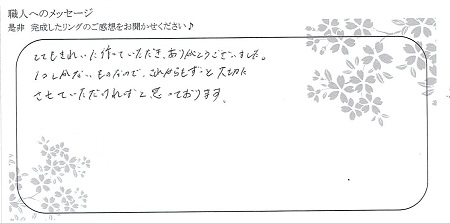 職人へのメッセージ
是非 完成したリングのご感想をお聞かせください♪
とてもきれいに作っていただき、ありがとうございました。
1つしかないものなので、これからもずっと大切に
させていただければと思っております。